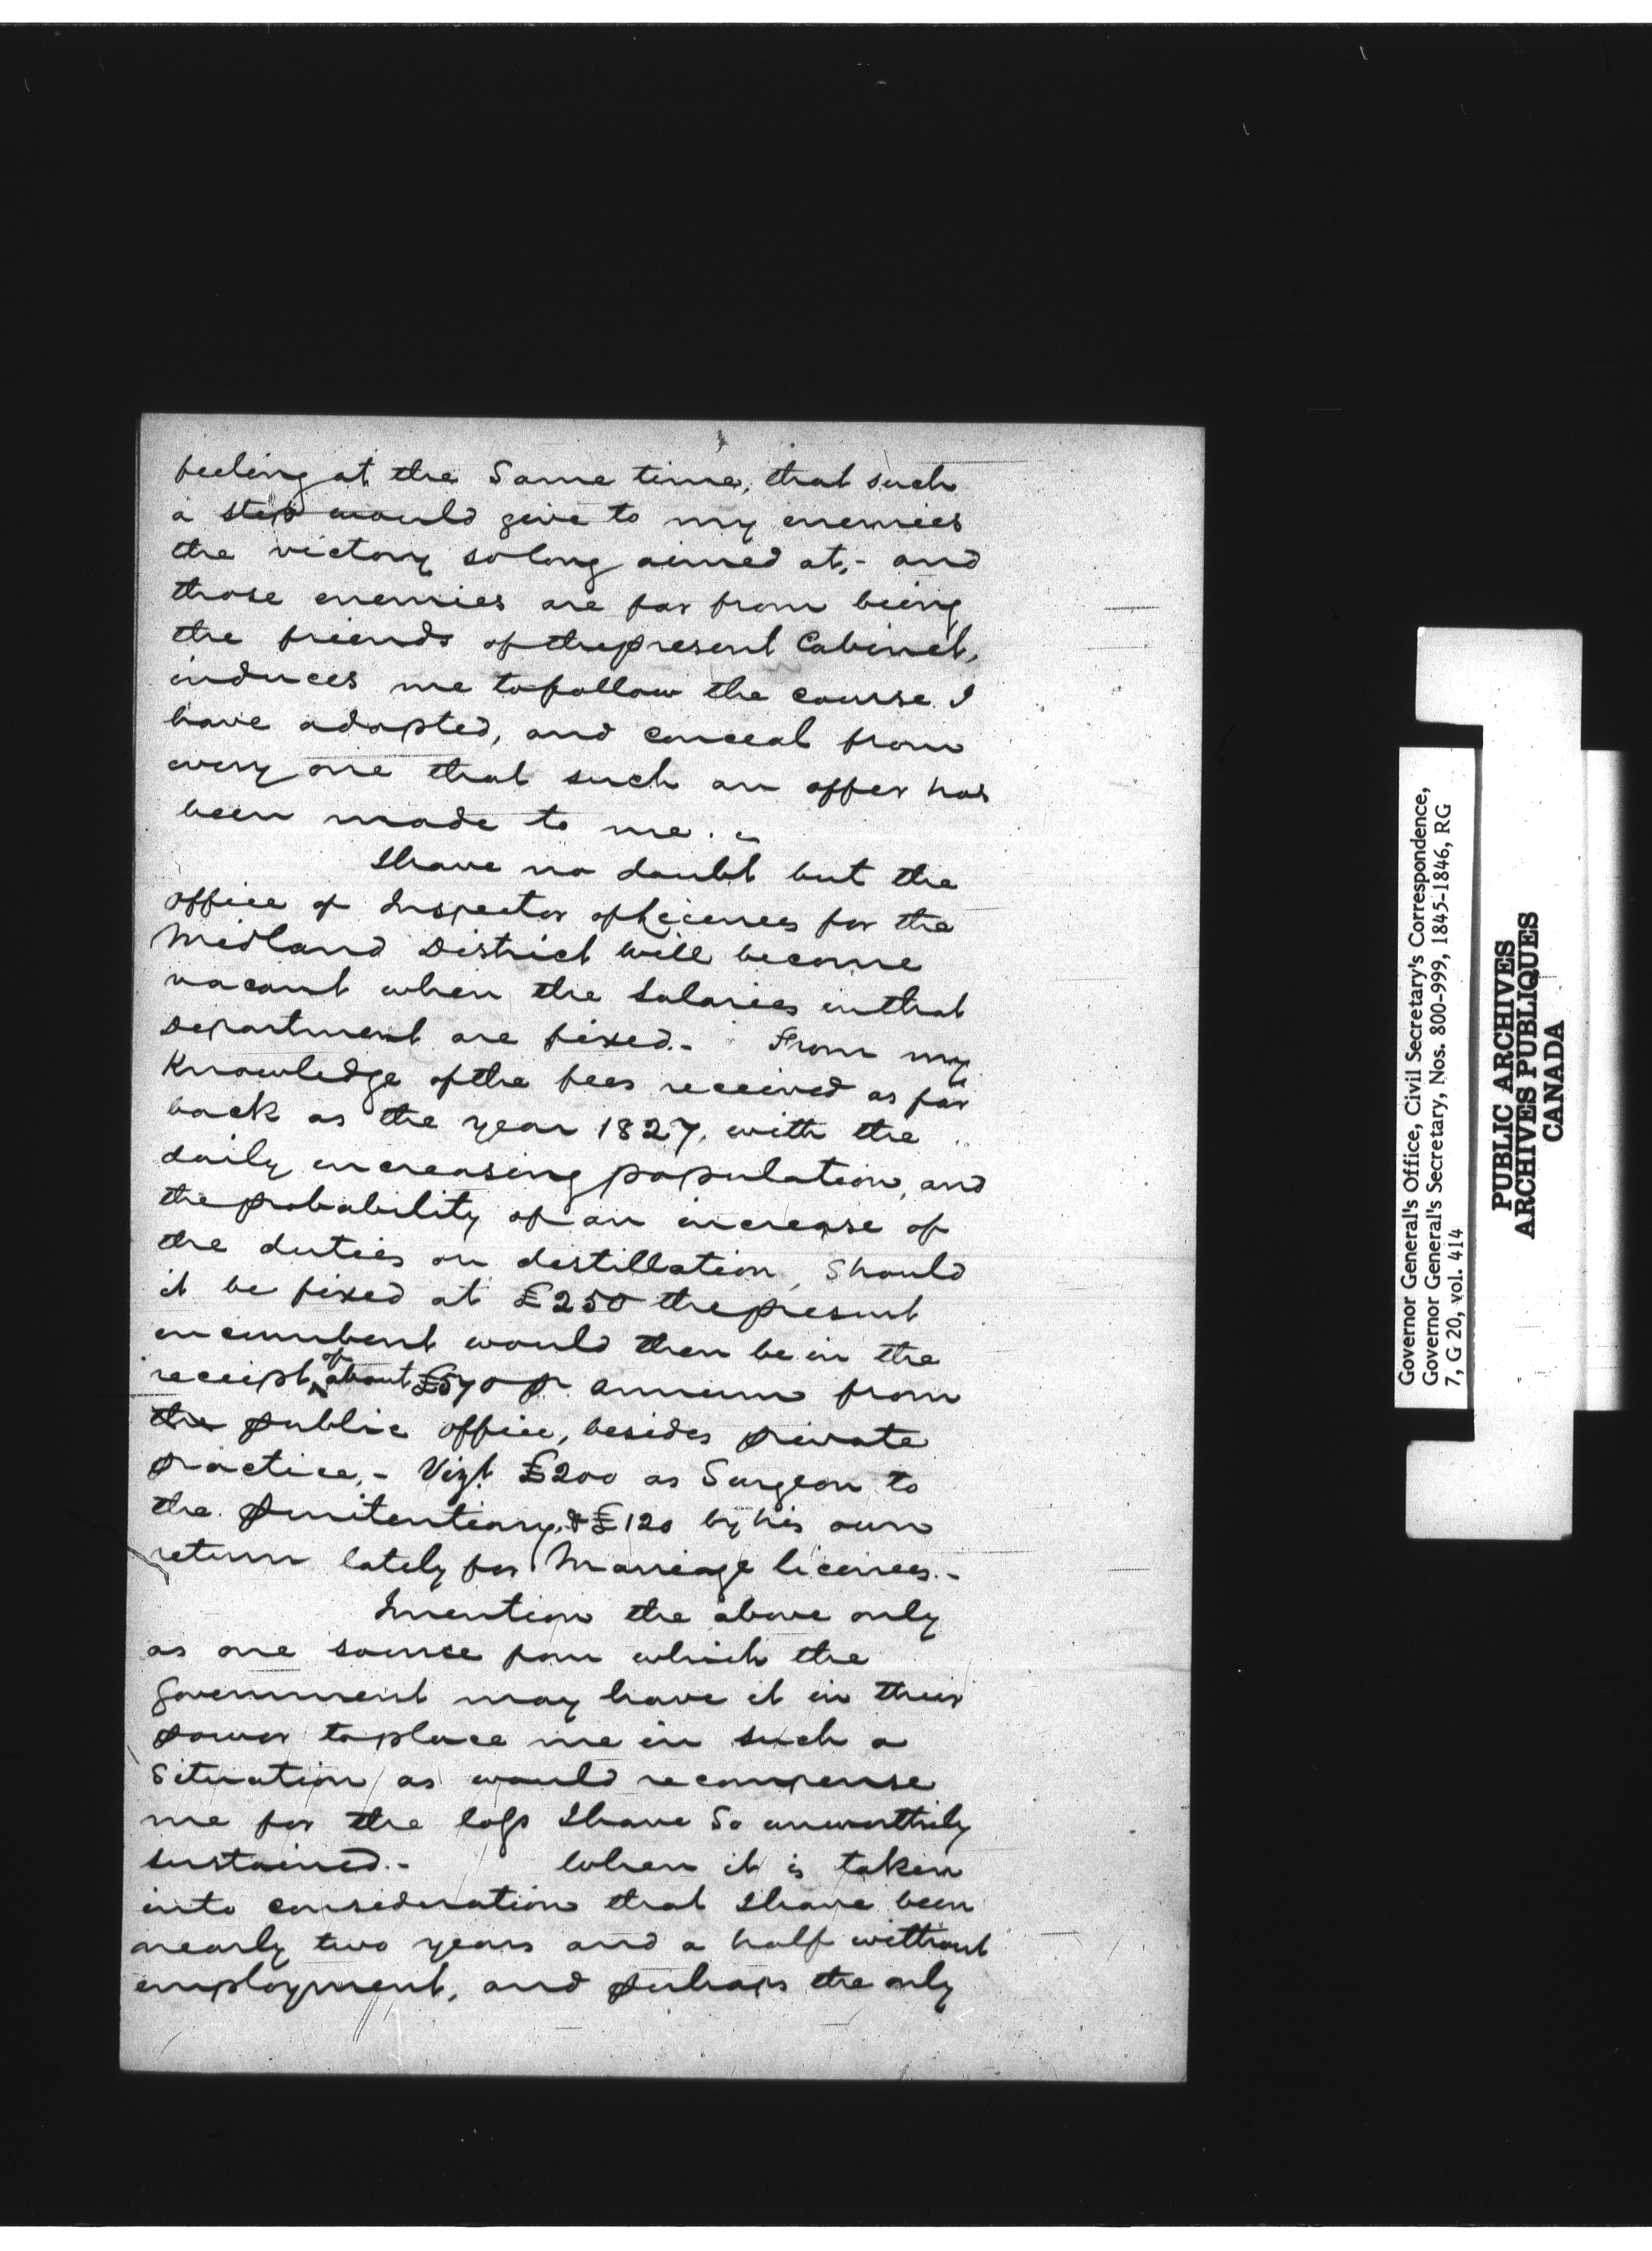 feeling at the Same time, that such
a step would give to my enemies
the victory so long aimed at,- and
those enemies are far from being
the friends of the present Cabinet,
induces me to follow the course I
have adopted, and conceal from
every one that such an offer has
been made to me.
I have no doubt but the
office of Inspector of Licenses for the
Midland District will become
vacant when the Salaries in that
Department are fixed.- From my
Knowledge of the fees received as far
back as the year 1827, with the
daily increasing population, and
the probability of an increase of
the duties on distillation, Should
it be fixed at £250 the present
incumbent would then be in the
receipt of about £570 pr annum from
the public office, besides private
practice,- Vizt £200 as Surgeon to
the Penitentiary, & £120 by his own
return lately for Marriage licenses.-
I mention the above only
as one source from which the
Government may have it in their
power to place me in such a
Situation as would recompense
me for the loss I have So unworthily
sustained.- When it is taken
into consideration that I have been
nearly two years and a half without
employment, and perhaps the only
Governor General's Office, Civil Secretary's Correspondence,
Governor General's Secretary, Nos. 800-999, 1845-1846, RG
7, G 20, vol. 414
PUBLIC ARCHIVES
ARCHIVES PUBLIQUES
CANADA